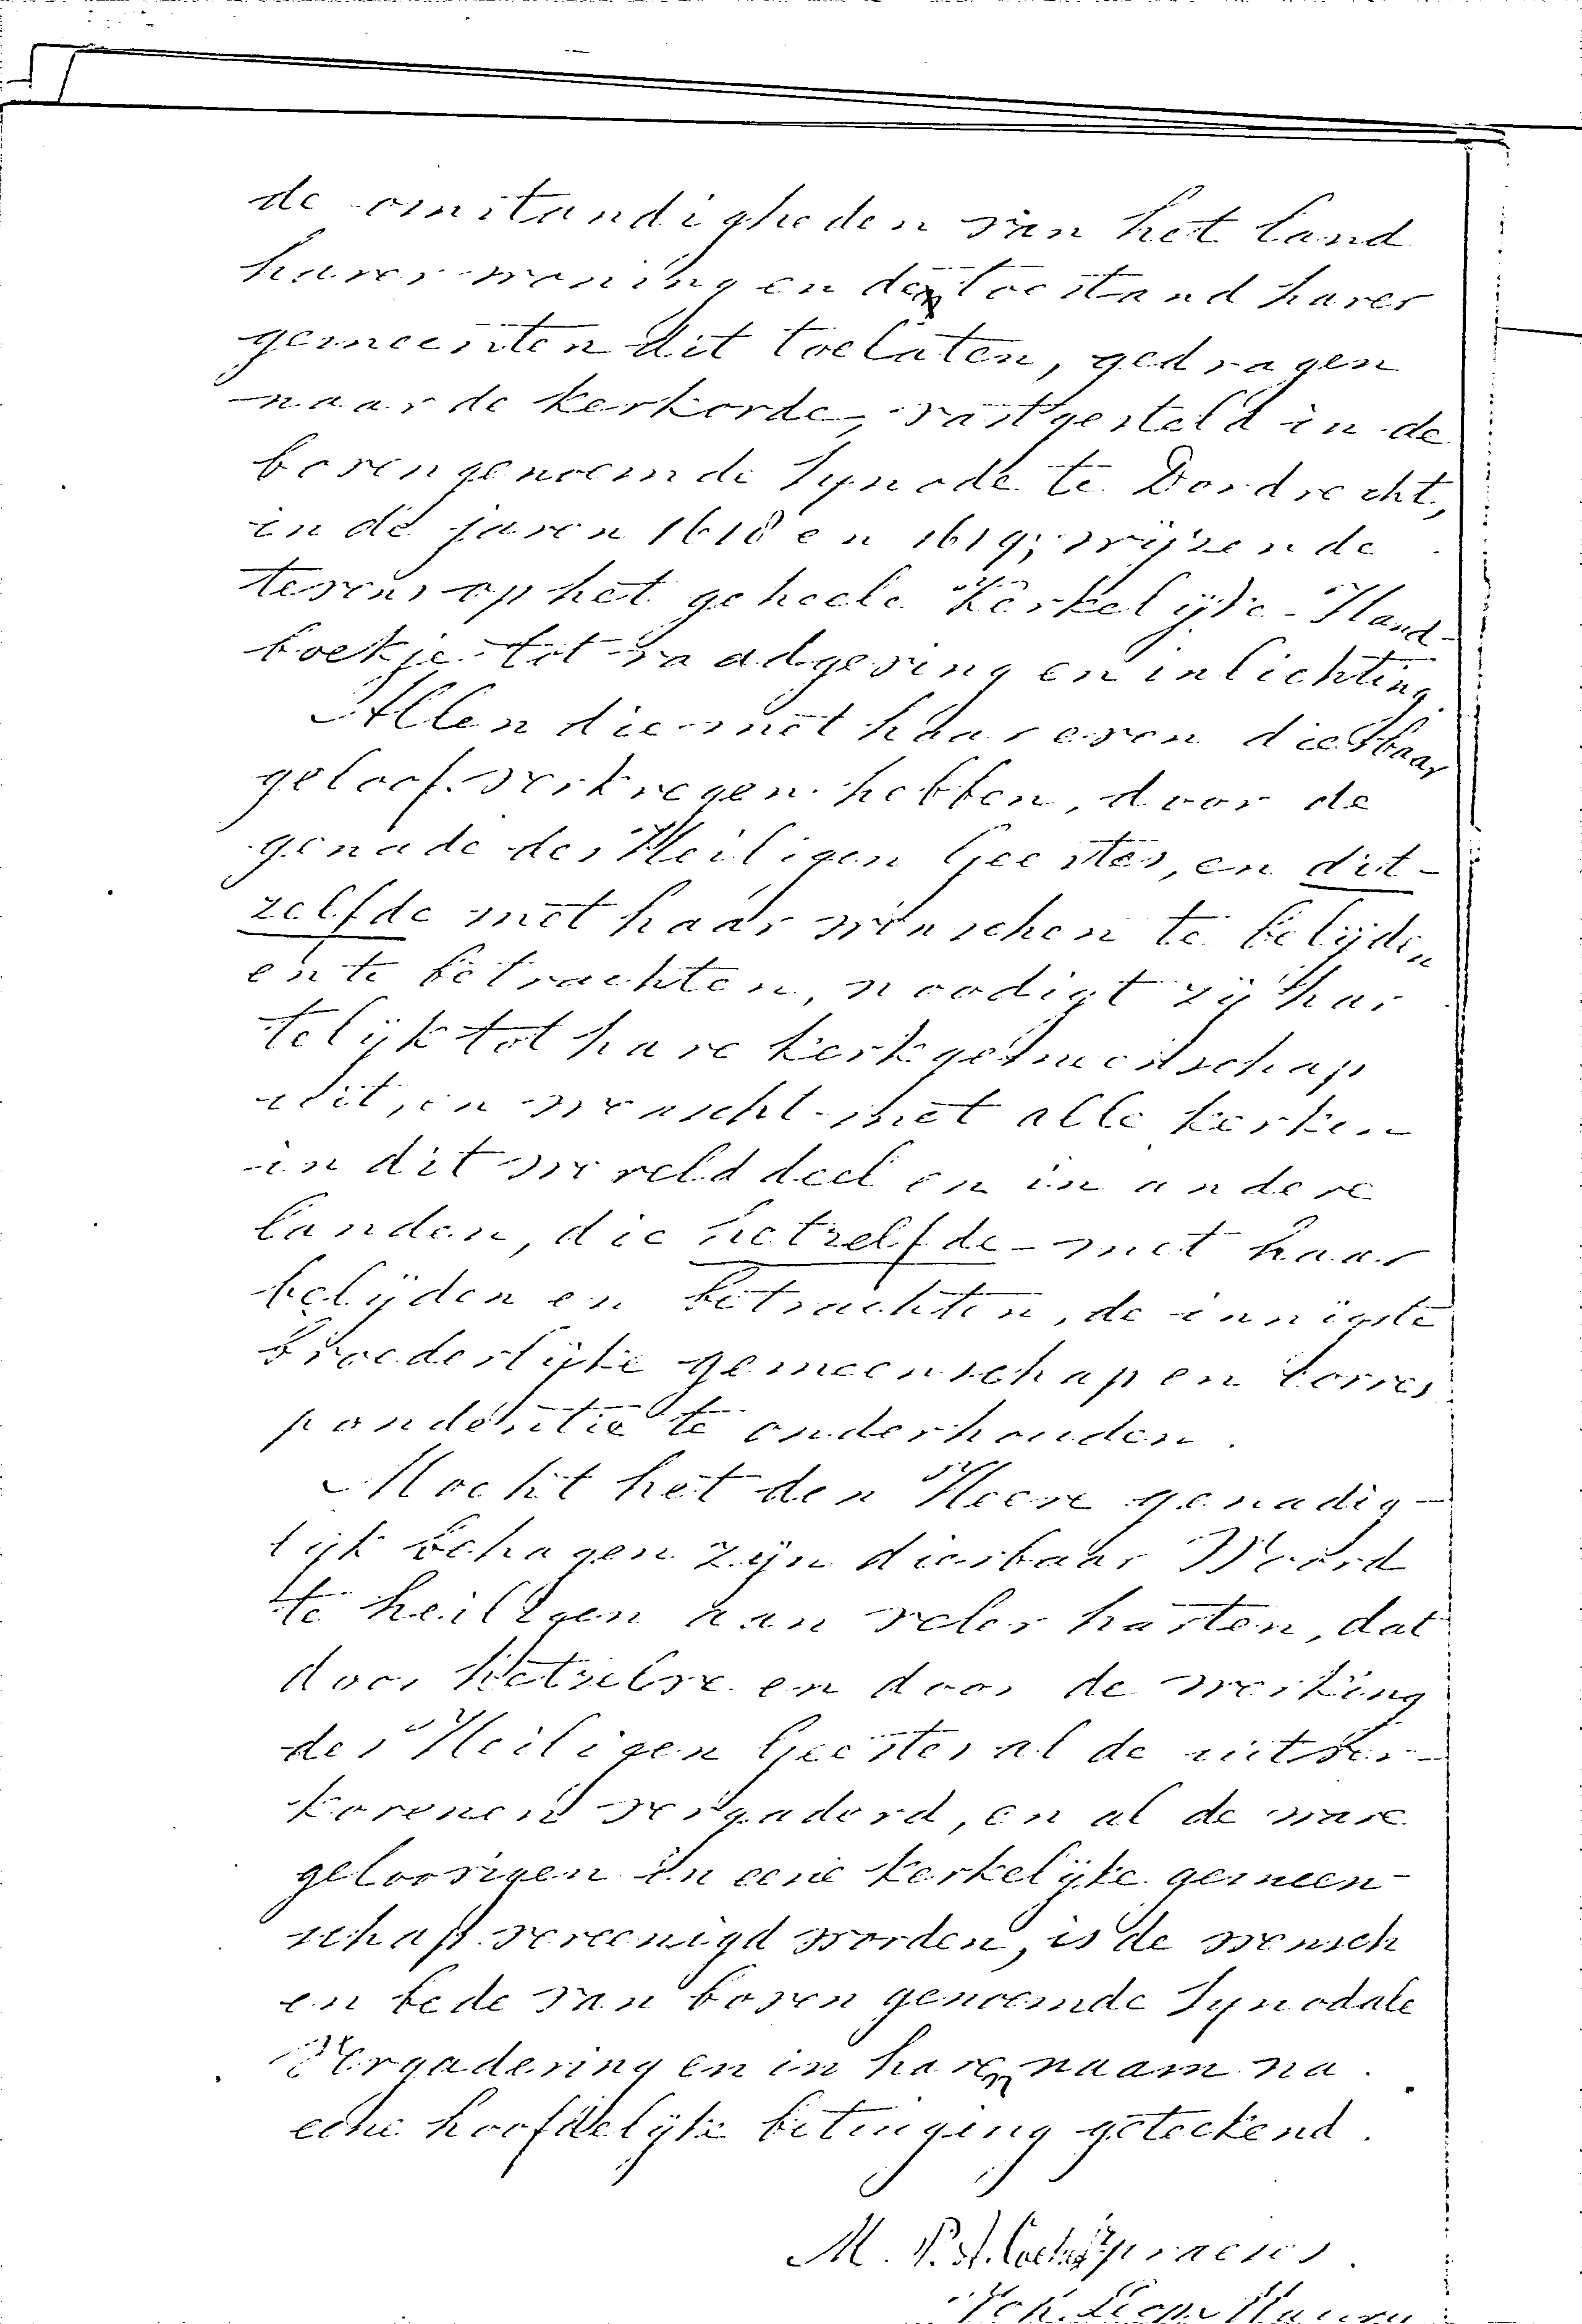 de omstandigheden van het land
harer woning en de toestand harer
gemeenten dit toelaten, gedragen
naar de kerkorde, vastgesteld in de
bovengenoemde Synode te Dordrecht,
in de jaren 1618 en 1619; wijzende
tevens op het geheele Kerkelijke Hand-
boekje tot raadgeving en inlichting.
Allen die met haar even dierbaar
geloof verkregen hebben, door de
genade des Heiligen Geestes, en dit-
zelfde met haar wenschen te belijden
en te betrachten, noodigt zij har
telijk tot hare kerkgemeenschap
uit, en wenscht met alle kerken
in dit werelddeel en in andere
landen, die hetzelfde met haar
belijden en betrachten, de innigste
broederlijke gemeenschap en corres
pondentie te onderhouden.
Mocht het den Heere genadig-
lijk behagen zijn dierbaar Woord
te heiligen aan veler harten, dat
door hetzelve en door de werking
des Heiligen Geestes al de uitver-
korenen vergaderd, en al de ware
geloovigen in eene kerkelijke gemeen-
schap vereenigd worden, is de wensch
en bede van boven genoemde Synodale
Vergadering en in haren naam na
eene hoofdelijke betuiging geteekend.
M. P. A. praeses.